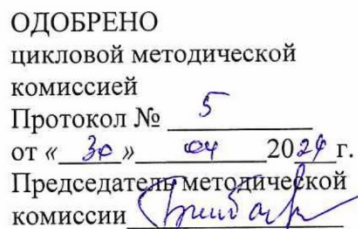 ОДОБРЕНО
цикловой методической
комиссией
Протокол № 5
от « 30 » 04 2024 г.
Председатель методической
комиссии